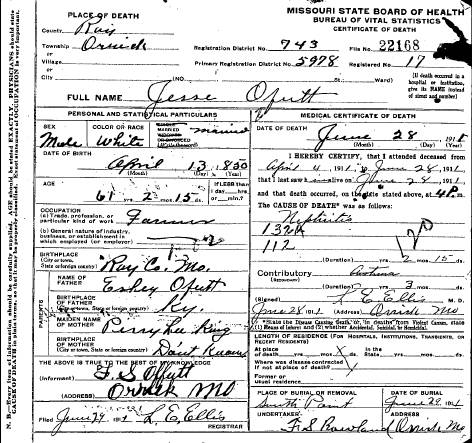 MISSOURI STATE BOARD OF HEALTH
BUREAU OF VITAL STATISTICS
CERTIFICATE OF DEATH
PLACE OF DEATH
County Ray
Township Orrick
or
Village
or
City
Registration District No. 743
File No. 22168
Primary Registration District No. 5978
Registered No. 17
(No. St.; Ward)
(If death occurred in a hospital or institution, give its NAME instead of street and number)
FULL NAME Jesse Offutt
PERSONAL AND STATISTICAL PARTICULARS
SEX Male
COLOR OR RACE White
SINGLE MARRIED WIDOWED OR DIVORCED married
DATE OF BIRTH April 13 1850
(Month) (Day) (Year)
AGE 61 yrs. 2 mos. 15 ds.
If LESS than 1 day, hrs. or min.?
OCCUPATION
(a) Trade, profession, or particular kind of work Farmer
(b) General nature of industry, business, or establishment in which employed (or employer)
BIRTHPLACE
(City or town, State or foreign country) Ray Co. Mo.
PARENTS
NAME OF FATHER Offutt
BIRTHPLACE OF FATHER
(City or town, State or foreign country) Ky.
MAIDEN NAME OF MOTHER King
BIRTHPLACE OF MOTHER
(City or town, State or foreign country) Don't Know
THE ABOVE IS TRUE TO THE BEST OF MY KNOWLEDGE
(Informant) Offutt
(ADDRESS) Orrick Mo
Filed June 29 1911 L. E. Ellis
REGISTRAR
MEDICAL CERTIFICATE OF DEATH
DATE OF DEATH June 28 1911
(Month) (Day) (Year)
I HEREBY CERTIFY, that I attended deceased from
April 4 1911, to June 28 1911
that I last saw h alive on June 28 1911
and that death occurred, on the date stated above, at 4 P. m.
The CAUSE OF DEATH* was as follows:
Nephritis
132A
112
120
(Duration) yrs. 2 mos. 15 ds.
Contributory
(Duration) yrs. 3 mos. ds.
(Signed) L. E. Ellis M. D.
June 28 1911 (Address) Orrick Mo
*State the Disease Causing Death, or, in deaths from Violent Causes, state (1) Means of Injury; and (2) whether Accidental, Suicidal, or Homicidal.
LENGTH OF RESIDENCE (FOR HOSPITALS, INSTITUTIONS, TRANSIENTS, OR RECENT RESIDENTS)
At place of death yrs. mos. ds. In the State yrs. mos. ds.
Where was disease contracted if not at place of death?
Former or usual residence
PLACE OF BURIAL OR REMOVAL South Point
DATE OF BURIAL June 29 1911
UNDERTAKER F. S. Rowland
ADDRESS Orrick Mo
N. B.—Every item of information should be carefully supplied. AGE should be stated EXACTLY. PHYSICIANS should state CAUSE OF DEATH in plain terms, so that it may be properly classified. Exact statement of OCCUPATION is very important.